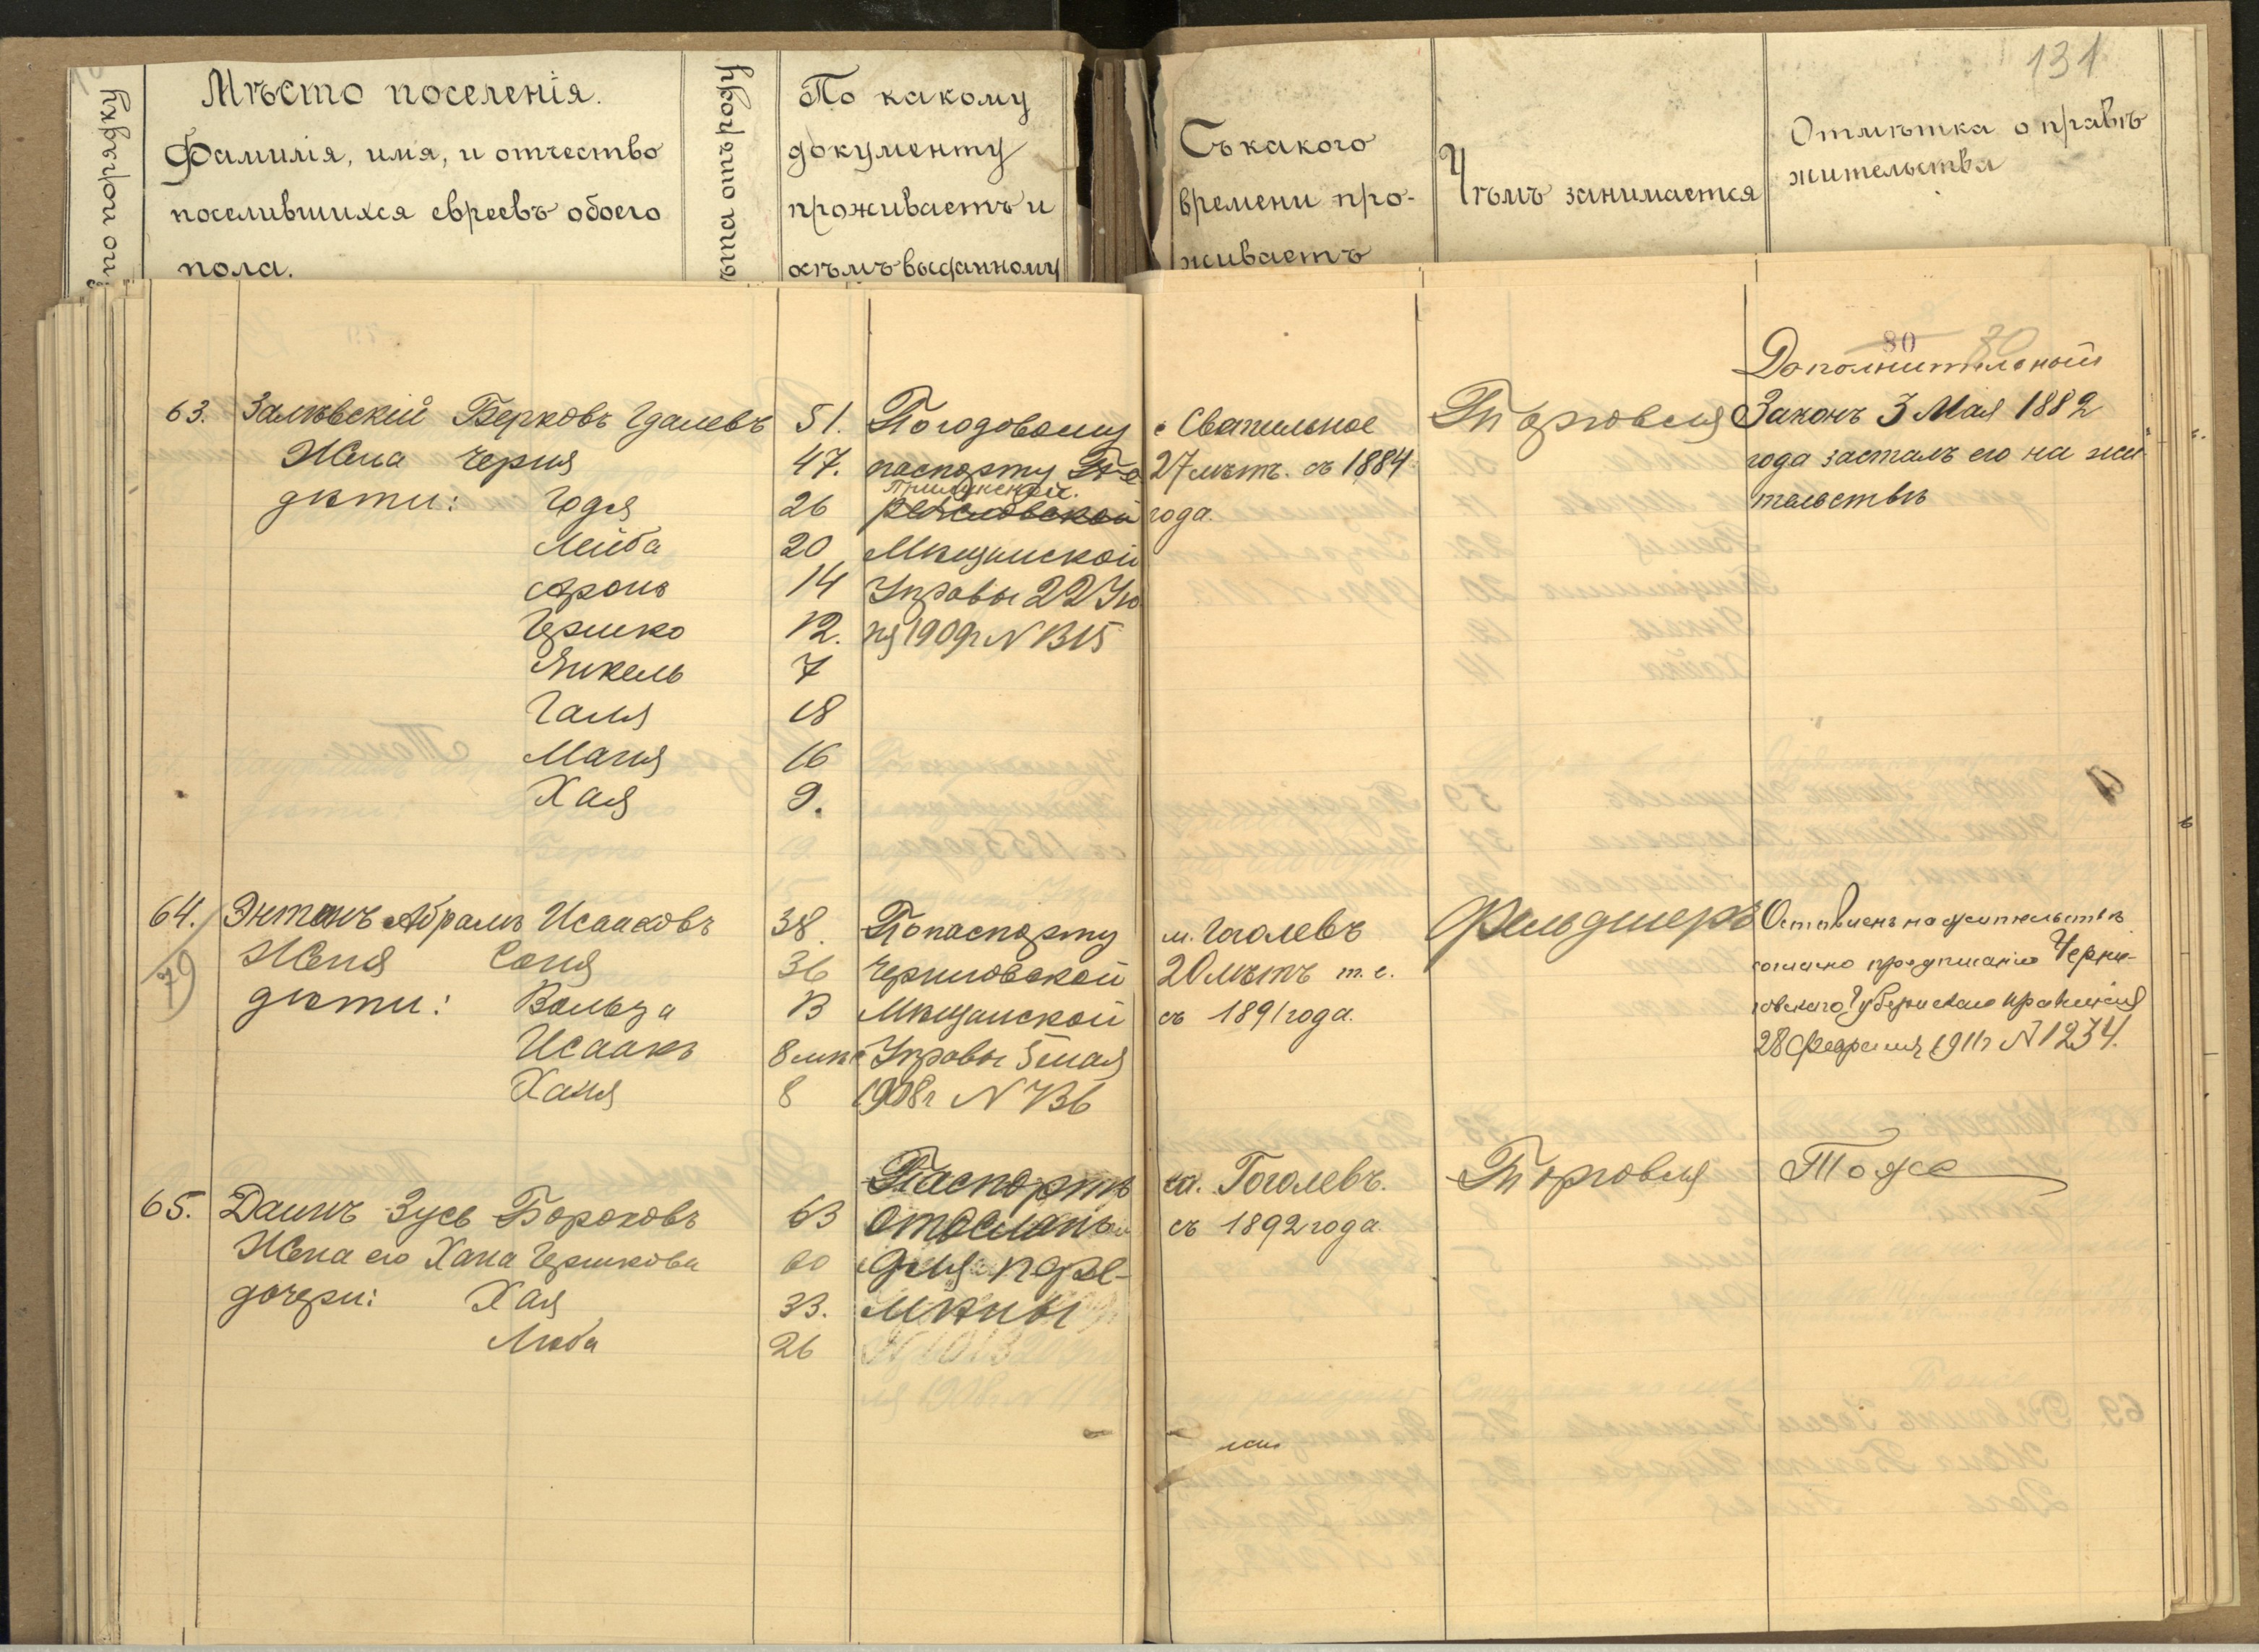 131
по порядку
Мѣсто поселенія.
Фамилія, имя, и отчество
поселившихся евреевъ обоего
пола.
ѣта отъ роду
По какому
документу
проживаетъ и
кѣмъ выданному
Съ какого
времени про-
живаетъ
Чѣмъ занимается
Отмѣтка о правѣ
жительства
80
63. Залѣвскій Берковъ Гдалевъ 51.
Жена Черня 47.
дѣти: Годя 26
Лейба 20
Аронъ 14
Гершко 12.
Янкель 7
Галя 18
Маня 16
Хая 9.
По годовому
паспорту
Прилукской
Мѣщанской
Управы 22 Ію
ня 1909г N 1315
с Сватильное
27 лѣтъ. съ 1884
года.
Торговля
Дополнительный
Законъ 3 Мая 1882
года засталъ его на жи
тельствѣ
64. Энтинъ Абрамъ Исааковъ 38.
79
Женя Соня 36
дѣти: Вольза 13
Исаакъ 8 мѣс
Ханя 8
По паспорту
Черниговской
Мѣщанской
Управы 5 мая
1908г N 736
м. Гоголевъ
20 лѣтъ т. е.
съ 1891 года.
Фельдшеръ
Оставленъ на жительствѣ
согласно предписанію Черни-
говскаго Губернскаго правленія
28 февраля 1911г N 1234.
65. Даинъ Зусь Бороховъ 63
Жена его Хана Гершкова 60
дочери: Хая 33.
Люба 26
Паспортъ
отосланъ
для пере-
мѣны
м. Гоголевъ.
съ 1892 года
Торговля
Тоже